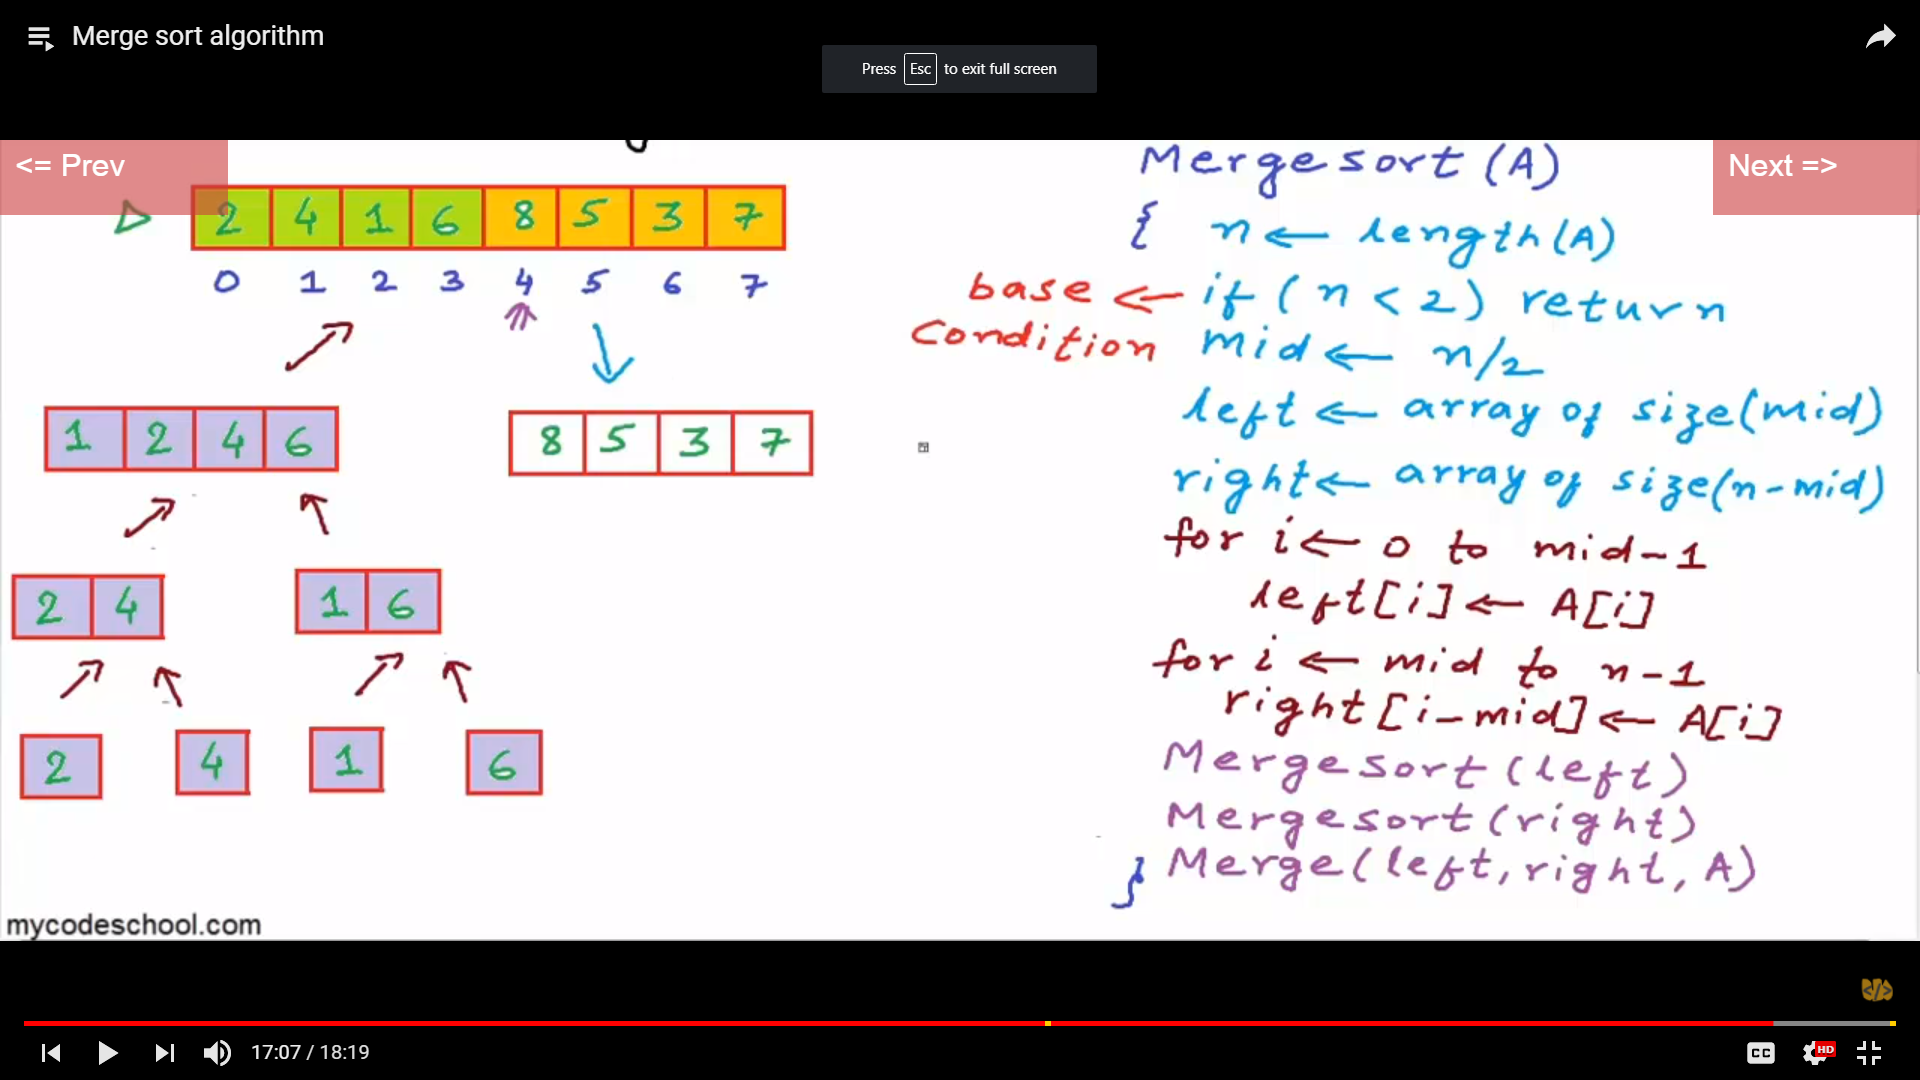 Merge sort algorithm
Press Esc to exit full screen
<= Prev
Next =>
2 4 1 6 8 5 3 7
0 1 2 3 4 5 6 7
1 2 4 6
8 5 3 7
2 4
1 6
2
4
1
6
mycodeschool.com
Mergesort (A)
{ n ← length(A)
base condition ← if (n < 2) return
mid ← n/2
left ← array of size(mid)
right ← array of size(n-mid)
for i ← 0 to mid-1
left[i] ← A[i]
for i ← mid to n-1
right[i-mid] ← A[i]
Mergesort (left)
Mergesort (right)
} Merge(left, right, A)
</> 
17:07 / 18:19
CC
HD